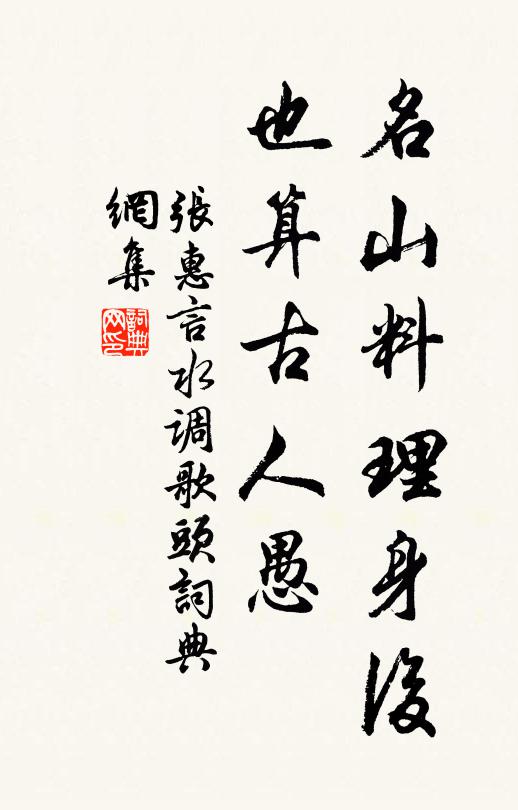 名山料理身後
也算古人愚
張惠言水调歌頭詞典
網集
詞典
网印